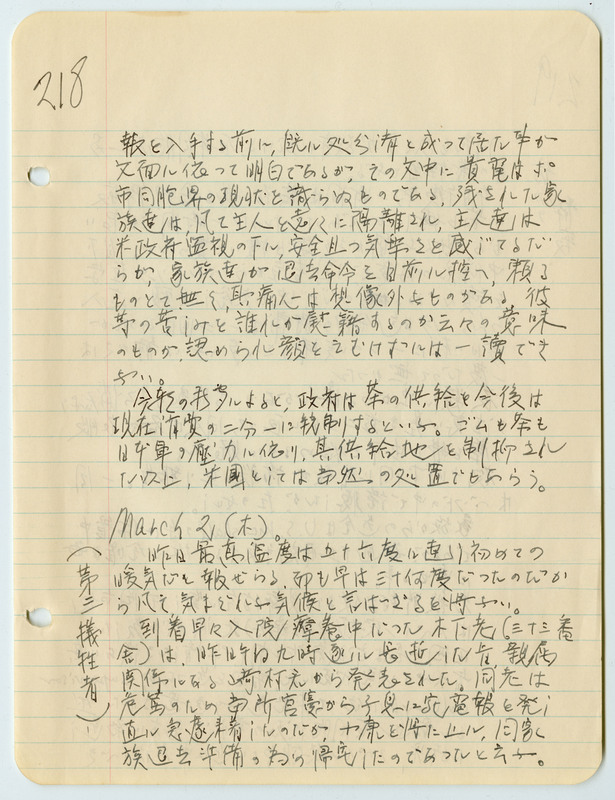 218
報を入手する前に、既に処分済と成つて居た事が
文面に依つて明白であるが、その文中に貴電はポ
市同胞界の現状を識らぬものである、残された家
族達は、凡て主人と遠くに隔離され、主人達は
米政府監視の下に、安全且つ気楽さを感じてるだ
らうが、家族達が退去命令を目前に控へ、頼る
ものとて無く、其痛心は想像外なものがある、彼
等の苦しみを誰れが慰藉するのか云々の意味
のものが認められ顔をそむけずには一讀でき
ない。
今朝の によると、政府は茶の供給を今後は
現在消費の二分一に統制するといふ。ゴムも茶も
日本軍の壓力に依り、其供給地を制御され
た以上、米國としては当然の処置でもあらう。
March 2, (木)。
昨日最高温度は五十六度に達し初めての
暖気だと報ぜらる、而も早は三十何度だつたのだか
ら凡て気まぐれな気候と言はざるを得ない。
(第三犠牲者)
到着早々入院療養中だつた木下老(三十三番
舎)は、昨日午后九時遂に長逝した旨、親属
関係にある 村 から発表された、同老は
危篤のため当所官憲から子息に 電報を発し
直に急遽来着したのだが、小康を得た上に、同家
族退去準備の為め帰宅したのであつたと云ふ。